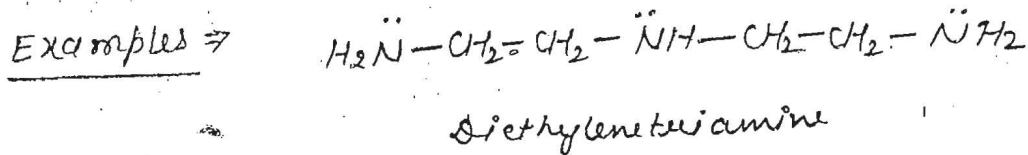 Examples ⇒ H₂N̈ — CH₂ = CH₂ — N̈H — CH₂ — CH₂ — N̈H₂
Diethylenetriamine